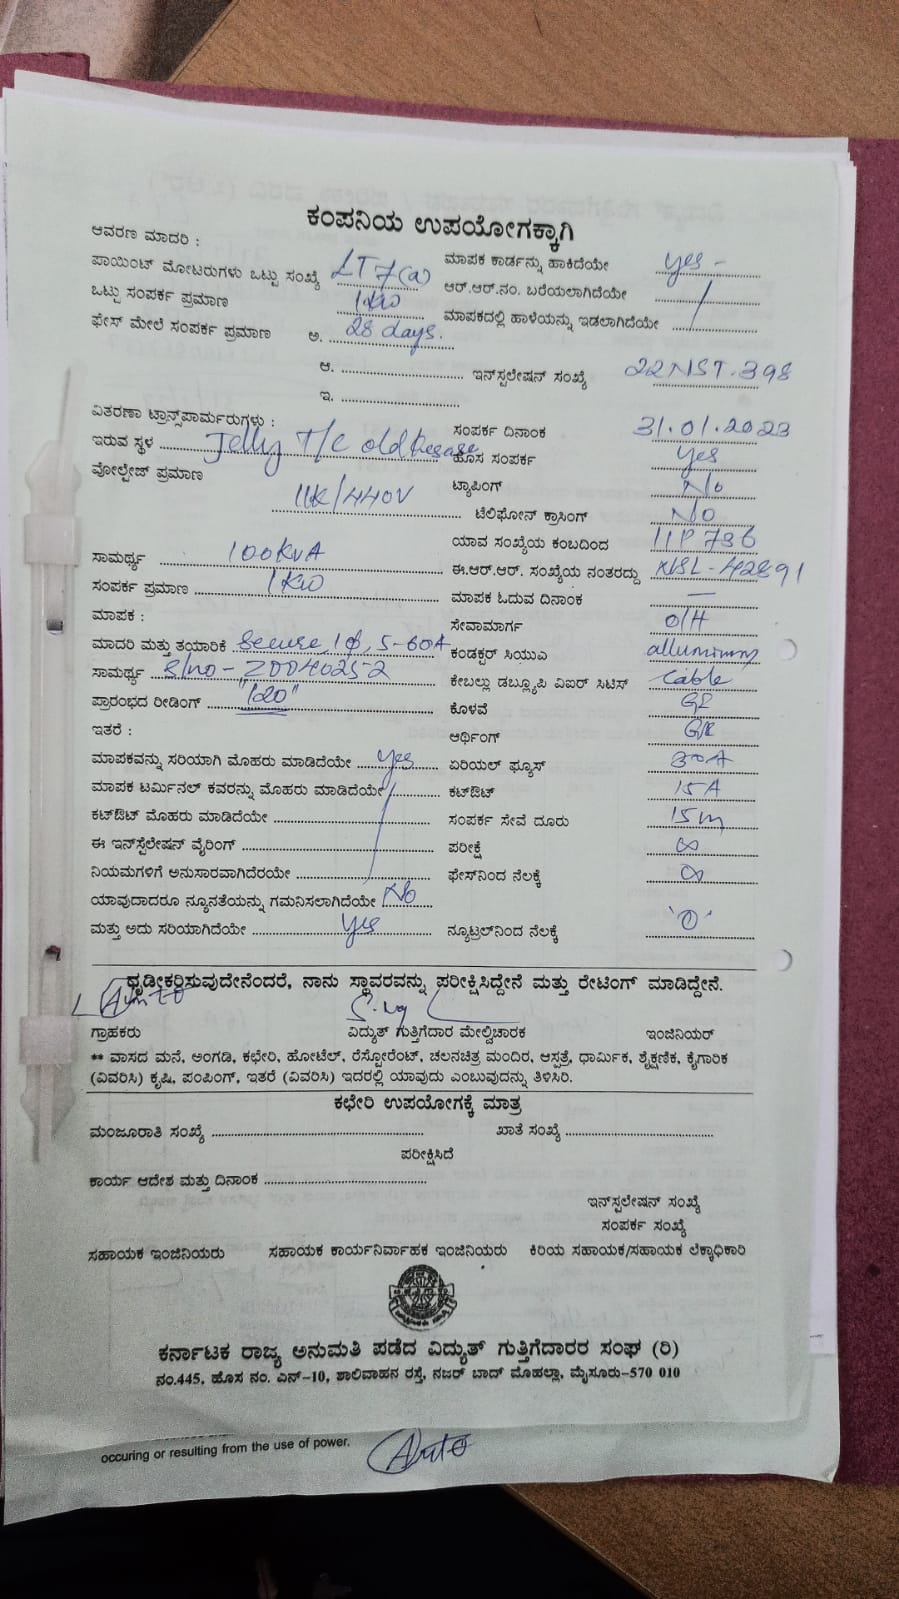 ಕಂಪನಿಯ ಉಪಯೋಗಕ್ಕಾಗಿ
ಆವರಣ ಮಾದರಿ :
ಮಾಪಕ ಕಾರ್ಡನ್ನು ಹಾಕಿದೆಯೇ yes -
ಪಾಯಿಂಟ್ ಮೋಟರುಗಳು ಒಟ್ಟು ಸಂಖ್ಯೆ LT 7(a)
ಆರ್.ಆರ್.ನಂ. ಬರೆಯಲಾಗಿದೆಯೇ
ಒಟ್ಟು ಸಂಪರ್ಕ ಪ್ರಮಾಣ 1KW
ಮಾಪಕದಲ್ಲಿ ಹಾಳೆಯನ್ನು ಇಡಲಾಗಿದೆಯೇ
ಫೇಸ್ ಮೇಲೆ ಸಂಪರ್ಕ ಪ್ರಮಾಣ ಅ. 28 days.
ಆ. ಇನ್‌ಸ್ಟಲೇಷನ್ ಸಂಖ್ಯೆ 22NST.398
ಇ.
ವಿತರಣಾ ಟ್ರಾನ್ಸ್‌ಪಾರ್ಮರುಗಳು :
ಸಂಪರ್ಕ ದಿನಾಂಕ 31.01.2023
ಇರುವ ಸ್ಥಳ Jelly T/c old
ಹೊಸ ಸಂಪರ್ಕ yes
ವೋಲ್ಟೇಜ್ ಪ್ರಮಾಣ 11K/440V
ಟ್ಯಾಪಿಂಗ್ No
ಟೆಲಿಫೋನ್ ಕ್ರಾಸಿಂಗ್ NO
ಯಾವ ಸಂಖ್ಯೆಯ ಕಂಬದಿಂದ 11P 736
ಸಾಮರ್ಥ್ಯ 100KVA
ಈ.ಆರ್.ಆರ್. ಸಂಖ್ಯೆಯ ನಂತರದ್ದು NSL-42891
ಸಂಪರ್ಕ ಪ್ರಮಾಣ 1KW
ಮಾಪಕ ಓದುವ ದಿನಾಂಕ —
ಮಾಪಕ :
ಸೇವಾಮಾರ್ಗ O/H
ಮಾದರಿ ಮತ್ತು ತಯಾರಿಕೆ Secure, 1ϕ, 5-60A
ಕಂಡಕ್ಟರ್ ಸಿಯುಎ alluminum
ಸಾಮರ್ಥ್ಯ S/no- Z0040252
ಕೇಬಲ್ಲು ಡಬ್ಲ್ಯೂಪಿ ವಿಐರ್ ಸಿಟಿಸ್ cable
ಪ್ರಾರಂಭದ ರೀಡಿಂಗ್ "120"
ಕೊಳವೆ GI
ಇತರೆ :
ಆರ್ಥಿಂಗ್
ಮಾಪಕವನ್ನು ಸರಿಯಾಗಿ ಮೊಹರು ಮಾಡಿದೆಯೇ yes
ಏರಿಯಲ್ ಫ್ಯೂಸ್ 30A
ಮಾಪಕ ಟರ್ಮಿನಲ್ ಕವರನ್ನು ಮೊಹರು ಮಾಡಿದೆಯೇ
ಕಟ್‌ಔಟ್ 15A
ಕಟ್‌ಔಟ್ ಮೊಹರು ಮಾಡಿದೆಯೇ
ಸಂಪರ್ಕ ಸೇವೆ ದೂರು 15m
ಈ ಇನ್‌ಸ್ಟೆಲೇಷನ್ ವೈರಿಂಗ್
ಪರೀಕ್ಷೆ ∞
ನಿಯಮಗಳಿಗೆ ಅನುಸಾರವಾಗಿದೆರಯೇ
ಫೇಸ್‌ನಿಂದ ನೆಲಕ್ಕೆ ∞
ಯಾವುದಾದರೂ ನ್ಯೂನತೆಯನ್ನು ಗಮನಿಸಲಾಗಿದೆಯೇ No
ಮತ್ತು ಅದು ಸರಿಯಾಗಿದೆಯೇ yes
ನ್ಯೂಟ್ರಲ್‌ನಿಂದ ನೆಲಕ್ಕೆ '0'
ಧೃಡೀಕರಿಸುವುದೇನೆಂದರೆ, ನಾನು ಸ್ಥಾವರವನ್ನು ಪರೀಕ್ಷಿಸಿದ್ದೇನೆ ಮತ್ತು ರೇಟಿಂಗ್ ಮಾಡಿದ್ದೇನೆ.
ಗ್ರಾಹಕರು ವಿದ್ಯುತ್ ಗುತ್ತಿಗೆದಾರ ಮೇಲ್ವಿಚಾರಕ ಇಂಜಿನಿಯರ್
** ವಾಸದ ಮನೆ, ಅಂಗಡಿ, ಕಛೇರಿ, ಹೋಟೆಲ್, ರೆಸ್ಟೋರೆಂಟ್, ಚಲನಚಿತ್ರ ಮಂದಿರ, ಆಸ್ಪತ್ರೆ, ಧಾರ್ಮಿಕ, ಶೈಕ್ಷಣಿಕ, ಕೈಗಾರಿಕ
(ವಿವರಿಸಿ) ಕೃಷಿ, ಪಂಪಿಂಗ್, ಇತರೆ (ವಿವರಿಸಿ) ಇದರಲ್ಲಿ ಯಾವುದು ಎಂಬುವುದನ್ನು ತಿಳಿಸಿರಿ.
ಕಛೇರಿ ಉಪಯೋಗಕ್ಕೆ ಮಾತ್ರ
ಮಂಜೂರಾತಿ ಸಂಖ್ಯೆ ಖಾತೆ ಸಂಖ್ಯೆ
ಪರೀಕ್ಷಿಸಿದೆ
ಕಾರ್ಯ ಆದೇಶ ಮತ್ತು ದಿನಾಂಕ
ಇನ್‌ಸ್ಟಲೇಷನ್ ಸಂಖ್ಯೆ
ಸಂಪರ್ಕ ಸಂಖ್ಯೆ
ಸಹಾಯಕ ಇಂಜಿನಿಯರು ಸಹಾಯಕ ಕಾರ್ಯನಿರ್ವಾಹಕ ಇಂಜಿನಿಯರು ಕಿರಿಯ ಸಹಾಯಕ/ಸಹಾಯಕ ಲೆಕ್ಕಾಧಿಕಾರಿ
ಕರ್ನಾಟಕ ರಾಜ್ಯ ಅನುಮತಿ ಪಡೆದ ವಿದ್ಯುತ್ ಗುತ್ತಿಗೆದಾರರ ಸಂಘ (ರಿ)
ನಂ.445, ಹೊಸ ನಂ. ಎನ್-10, ಶಾಲಿವಾಹನ ರಸ್ತೆ, ನಜರ್ ಬಾದ್ ಮೊಹಲ್ಲಾ, ಮೈಸೂರು-570 010
occuring or resulting from the use of power.